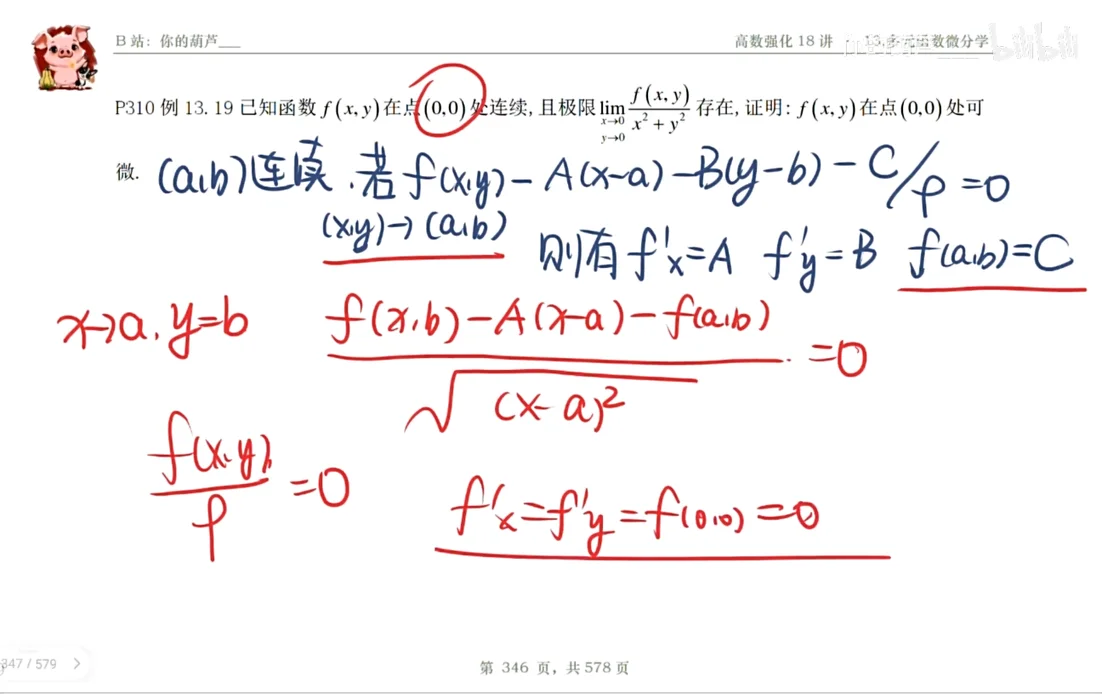 B 站：你的葫芦___
高数强化 18 讲 · 13.多元函数微分学
bilibili
P310 例 13.19 已知函数 f(x,y) 在点 (0,0) 处连续, 且极限 lim_{x→0, y→0} f(x,y)/(x²+y²) 存在, 证明: f(x,y) 在点 (0,0) 处可
微.
(a,b)连续. 若 f(x,y)-A(x-a)-B(y-b)-C/ρ=0
(x,y)→(a,b)
则有 f'x=A f'y=B f(a,b)=C
x→a, y=b
f(x,b)-A(x-a)-f(a,b)/√(x-a)² =0
f(x,y)/ρ =0
f'x=f'y=f(0,0)=0
347 / 579 >
第 346 页, 共 578 页